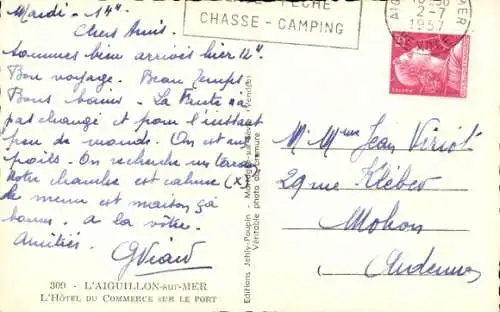 Mardi - 14H
Chers Amis.
Sommes bien arrivés hier 12H
Bon voyage. Beau temps.
Bons bains. - La Faute n'a
pas changé et pour l'instant
peu de monde. On est aux
poils. On recherche un terrain
Notre chambre est calme (x)
le menu est maison ça
baume. a la vôtre.
Amitiés.
GViaud
309 - L'AIGUILLON-SUR-MER
L'HÔTEL DU COMMERCE SUR LE PORT
Editions Jehly-Poupin - Mortagne-sur-Sèvre (Vendée)
Véritable photo au bromure
PÊCHE
CHASSE - CAMPING
2-7
1957
MER
M. Mme Jean Viriot
29 rue Kléber
Mohon
Ardennes